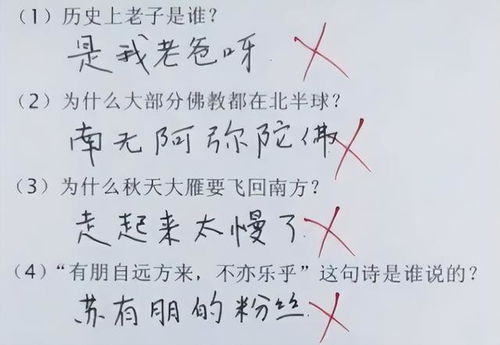 （1）历史上老子是谁？
是我老爸呀
（2）为什么大部分佛教都在北半球？
南无阿弥陀佛
（3）为什么秋天大雁要飞回南方？
走起来太慢了
（4）“有朋自远方来，不亦乐乎”这句诗是谁说的？
苏有朋的粉丝